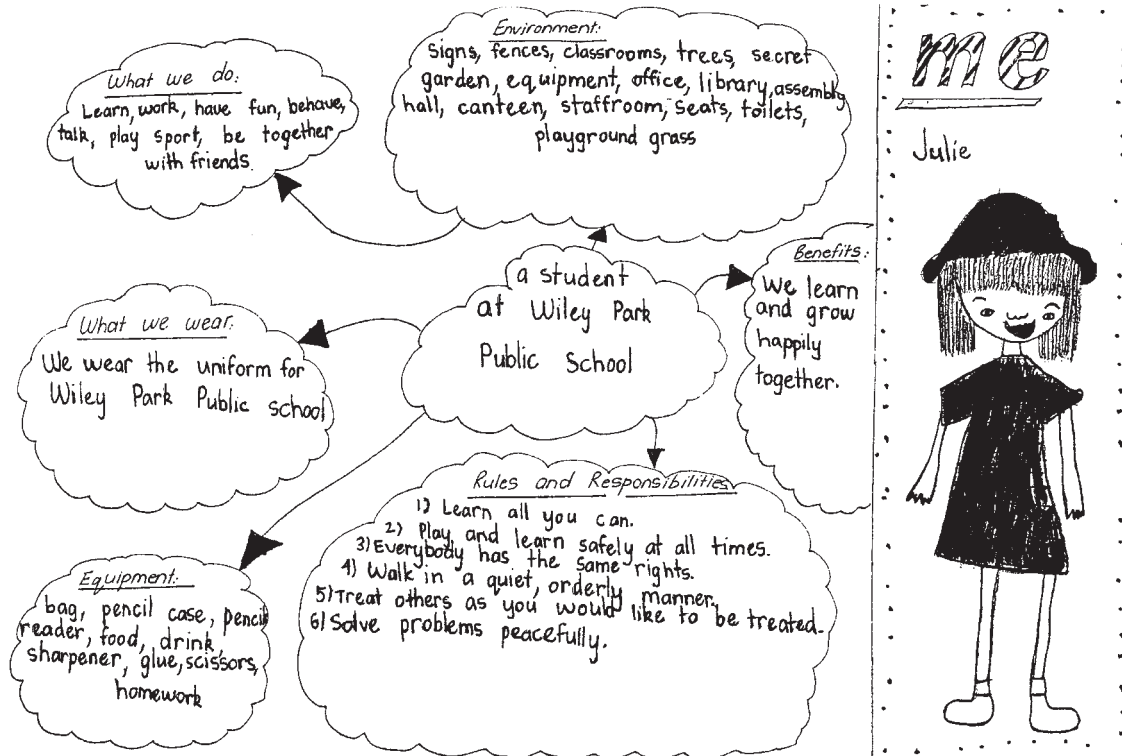 What we do:
Learn, work, have fun, behave,
talk, play sport, be together
with friends.
Environment:
Signs, fences, classrooms, trees, secret
garden, equipment, office, library, assembly
hall, canteen, staffroom, seats, toilets,
playground grass
me
Julie
a student
at Wiley Park
Public School
Benefits:
We learn
and grow
happily
together.
What we wear:
We wear the uniform for
Wiley Park Public school
Rules and Responsibilities
1) Learn all you can.
2) Play and learn safely at all times.
3) Everybody has the same rights.
4) Walk in a quiet, orderly manner.
5) Treat others as you would like to be treated.
6) Solve problems peacefully.
Equipment:
bag, pencil case, pencil
reader, food, drink,
sharpener, glue, scissors,
homework